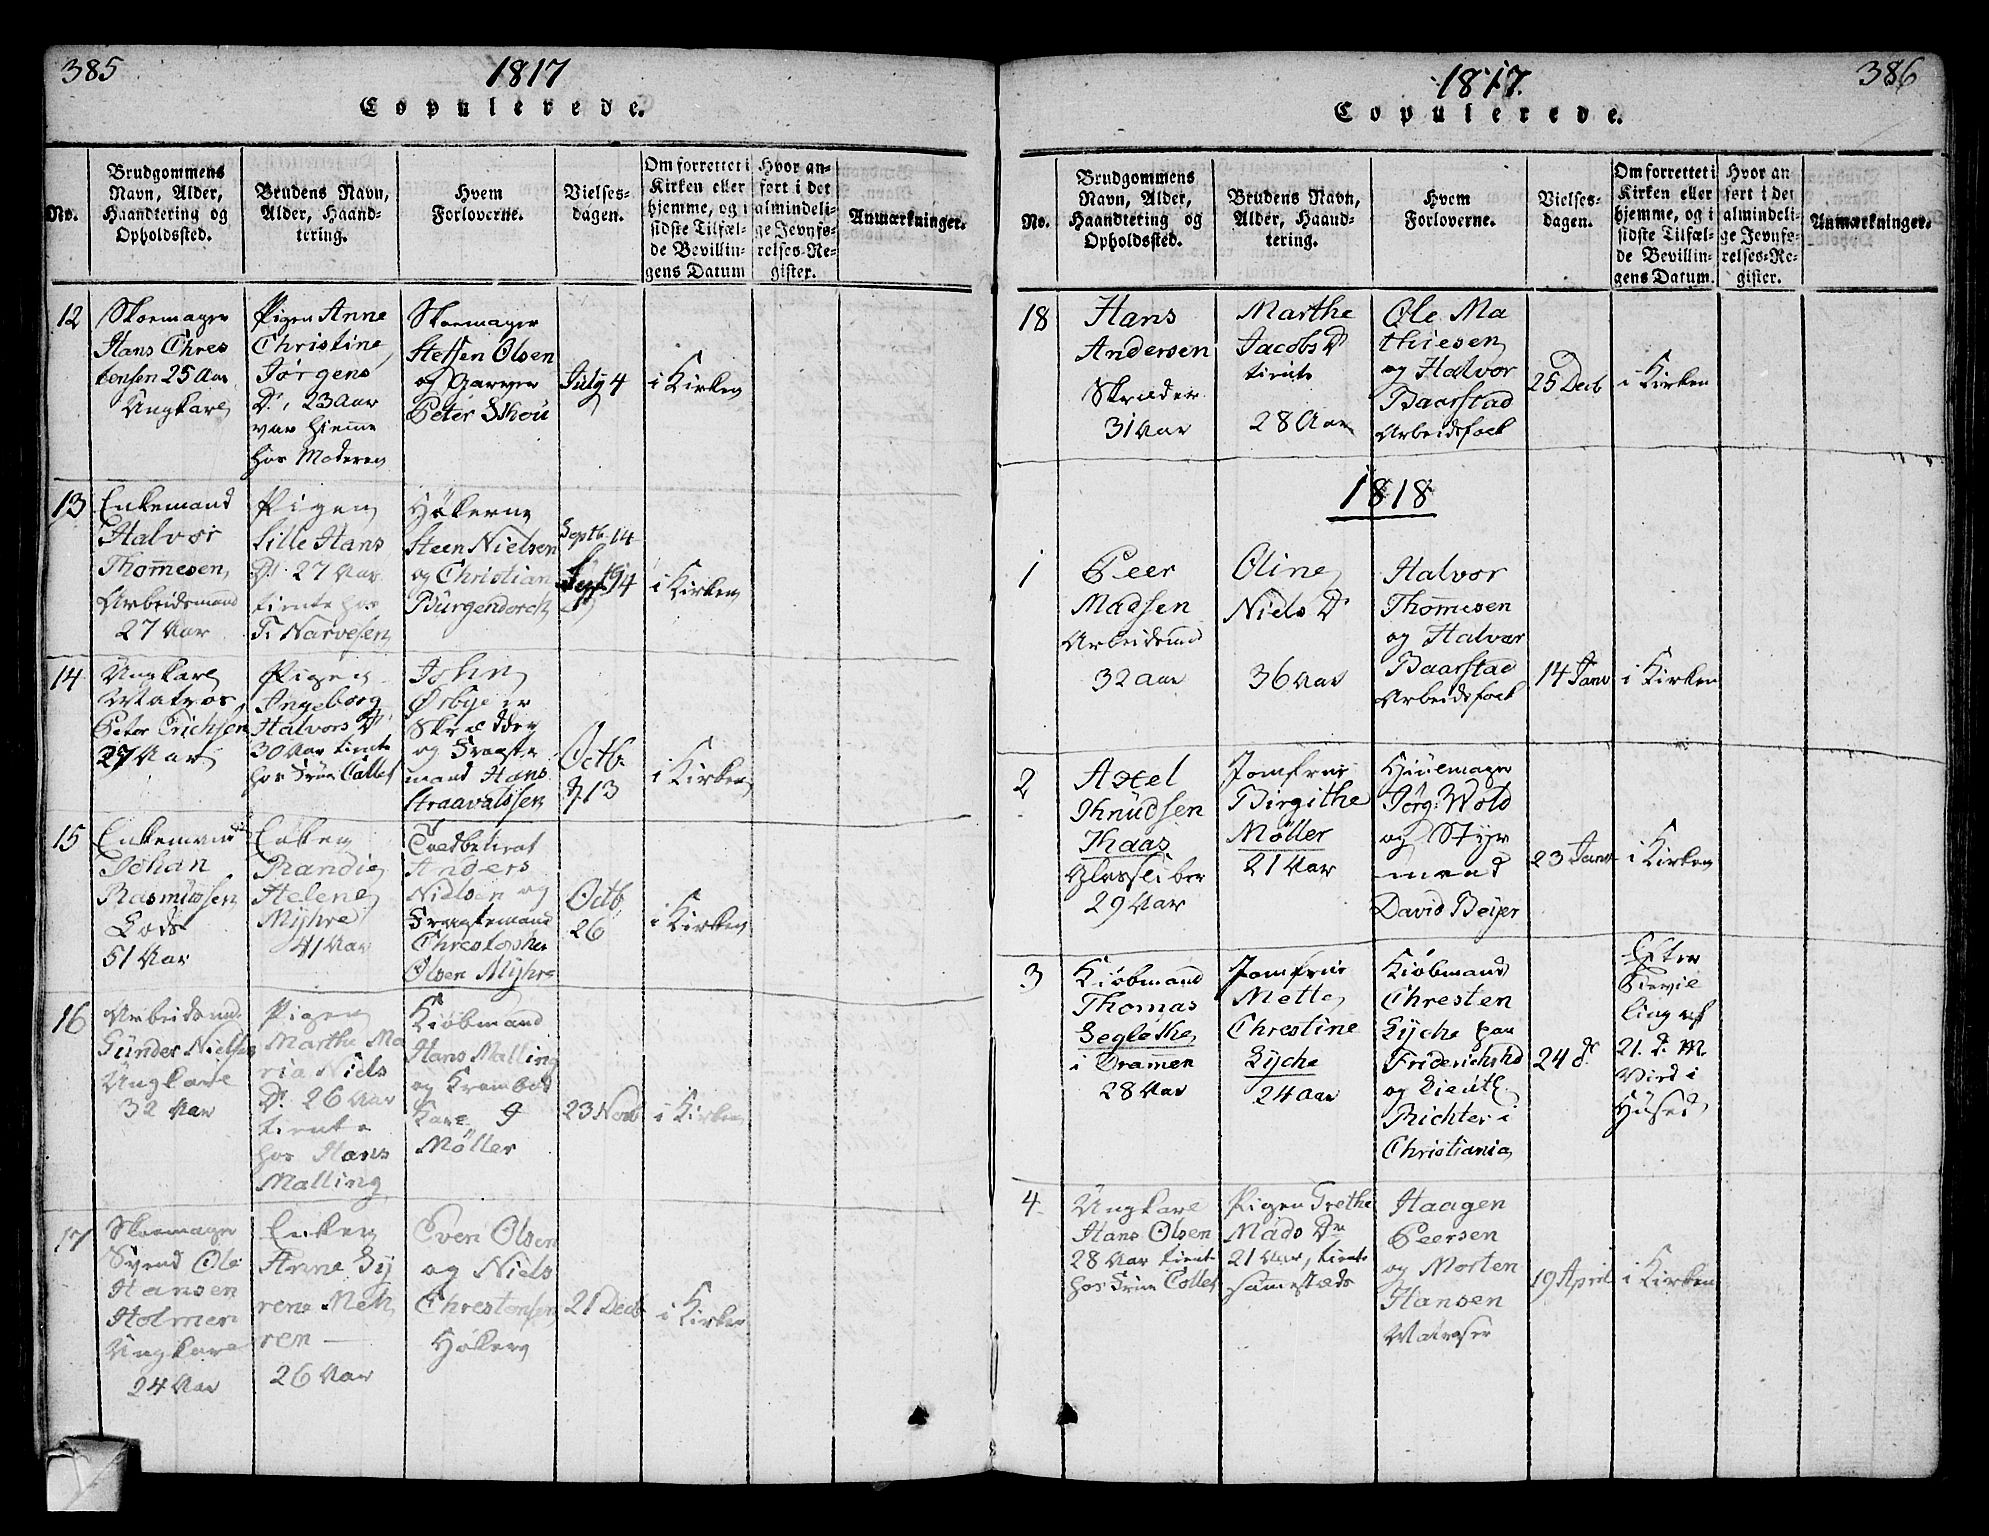 385
1817
Copulerede.
No.
Brudgommens
Navn, Alder,
Haandtering og
Opholdssted.
Brudens Navn,
Alder, Haand-
tering.
Hvem
Forloverne.
Vielses-
dagen.
Om forrettet i
Kirken eller
hjemme, og i
sidste Tilfæl-
de Bevillin-
gens Datum
Hvor an-
ført i det
almindeli-
ge Jevnfø-
relses-Re-
gister.
Anmærkninger.
12
Skoemager
Hans Chres
tensen 25 Aar
Ungkarl
Pigen Anne
Christine
Jörgens
Dr, 23 Aar
var hiemme
hos Moderen
Skoemager
Steffen Olsen
og Garver
Peter Skou
July 4
i Kirken
13
Enkemand
Halvor
Thommesen
Arbeidsmand
27 Aar
Pigen
Lille Hans
Dr 27 Aar
tiente hos
T. Narvesen
Høkerne
Steen Nielsen
og Christian
Bürgendorck
Septb. 14
i Kirken
14
Ungkarl
Matros
Peter Erichsen
27 Aar
Pigen
Ingeborg
Halvors Dr
30 Aar tiente
hos Frue Collet
John
Ørbye er
Skrædder
og Fragte
mand Hans
Straavalssen
Octb.
13
i Kirken
15
Enkemand
Johan
Rasmussen
Lods
51 Aar
Enken
Randie
Helene
Myhre
41 Aar
Toedbetient
Anders
Nielsen og
Fragtemand
Chrestopher
Olsen Myhre
Octb.
26
i Kirken
16
Arbeidsmd
Gunder Nielsen
Ungkarl
32 Aar
Pigen
Marthe Ma
ria Niels
Dr. 26 Aar
tiente
hos Hans
Malling
Kiöbmand
Hans Malling
og Krambod
Karl J
Möller
23 Novb
i Kirken
17
Skoemager
Svend Ole
Hansen
Holmen
Ungkarl
24 Aar
Enken
Anne Sy
rene Meh
ren
26 Aar
Even Olsen
og Niels
Chrestensen
Høkere
21 Decb
i Kirken
1817.
386
Copulerede.
No.
Brudgommens
Navn, Alder,
Haandtering og
Opholdssted.
Brudens Navn,
Alder, Haand-
tering.
Hvem
Forloverne.
Vielses-
dagen.
Om forrettet i
Kirken eller
hjemme, og i
sidste Tilfæl-
de Bevillin-
gens Datum.
Hvor an-
ført i det
almindeli-
ge Jevnfø-
relses-Re-
gister.
Anmærkninger.
18
Hans
Andersen
Skræder
31 Aar
Marthe
Jacobs Dr
tiente
28 Aar
Ole Ma
thiesen
og Halvor
Baarstad
Arbeidsfolk
25 Decb
i Kirken
1818
1
Peer
Madsen
Arbeidsmd
32 Aar
Oline
Niels Dr
36 Aar
Halvor
Thommesen
og Halvor
Baarstad
Arbeidsfolk
14 Janv
i Kirken
2
Axel
Knudsen
Kaas
Glassliber
29 Aar
Jomfrue
Birgithe
Möller
21 Aar
Hiulemager
Jörg: Wold
og Styr
mand
David Beijer
23 Janv
i Kirken
3
Kiöbmand
Thomas
Seglethe
i Dramen
28 Aar
Jomfrue
Mette
Chrestine
Lyche
24 Aar
Kiöbmand
Chresten
Lyche paa
Friderichshd
og Lieut.
Richter i
Christiania
24 d.
Efter
Bevil
ling af
21. d. M.
Vied i
Huset
4
Ungkarl
Hans Olsen
28 Aar tiente
hos Frue Collet
Pigen Grethe
Mads Dr
21 Aar, tiente
samestæds
Haagen
Peersen
og Morten
Hansen
Matroser
19 April
i Kirken